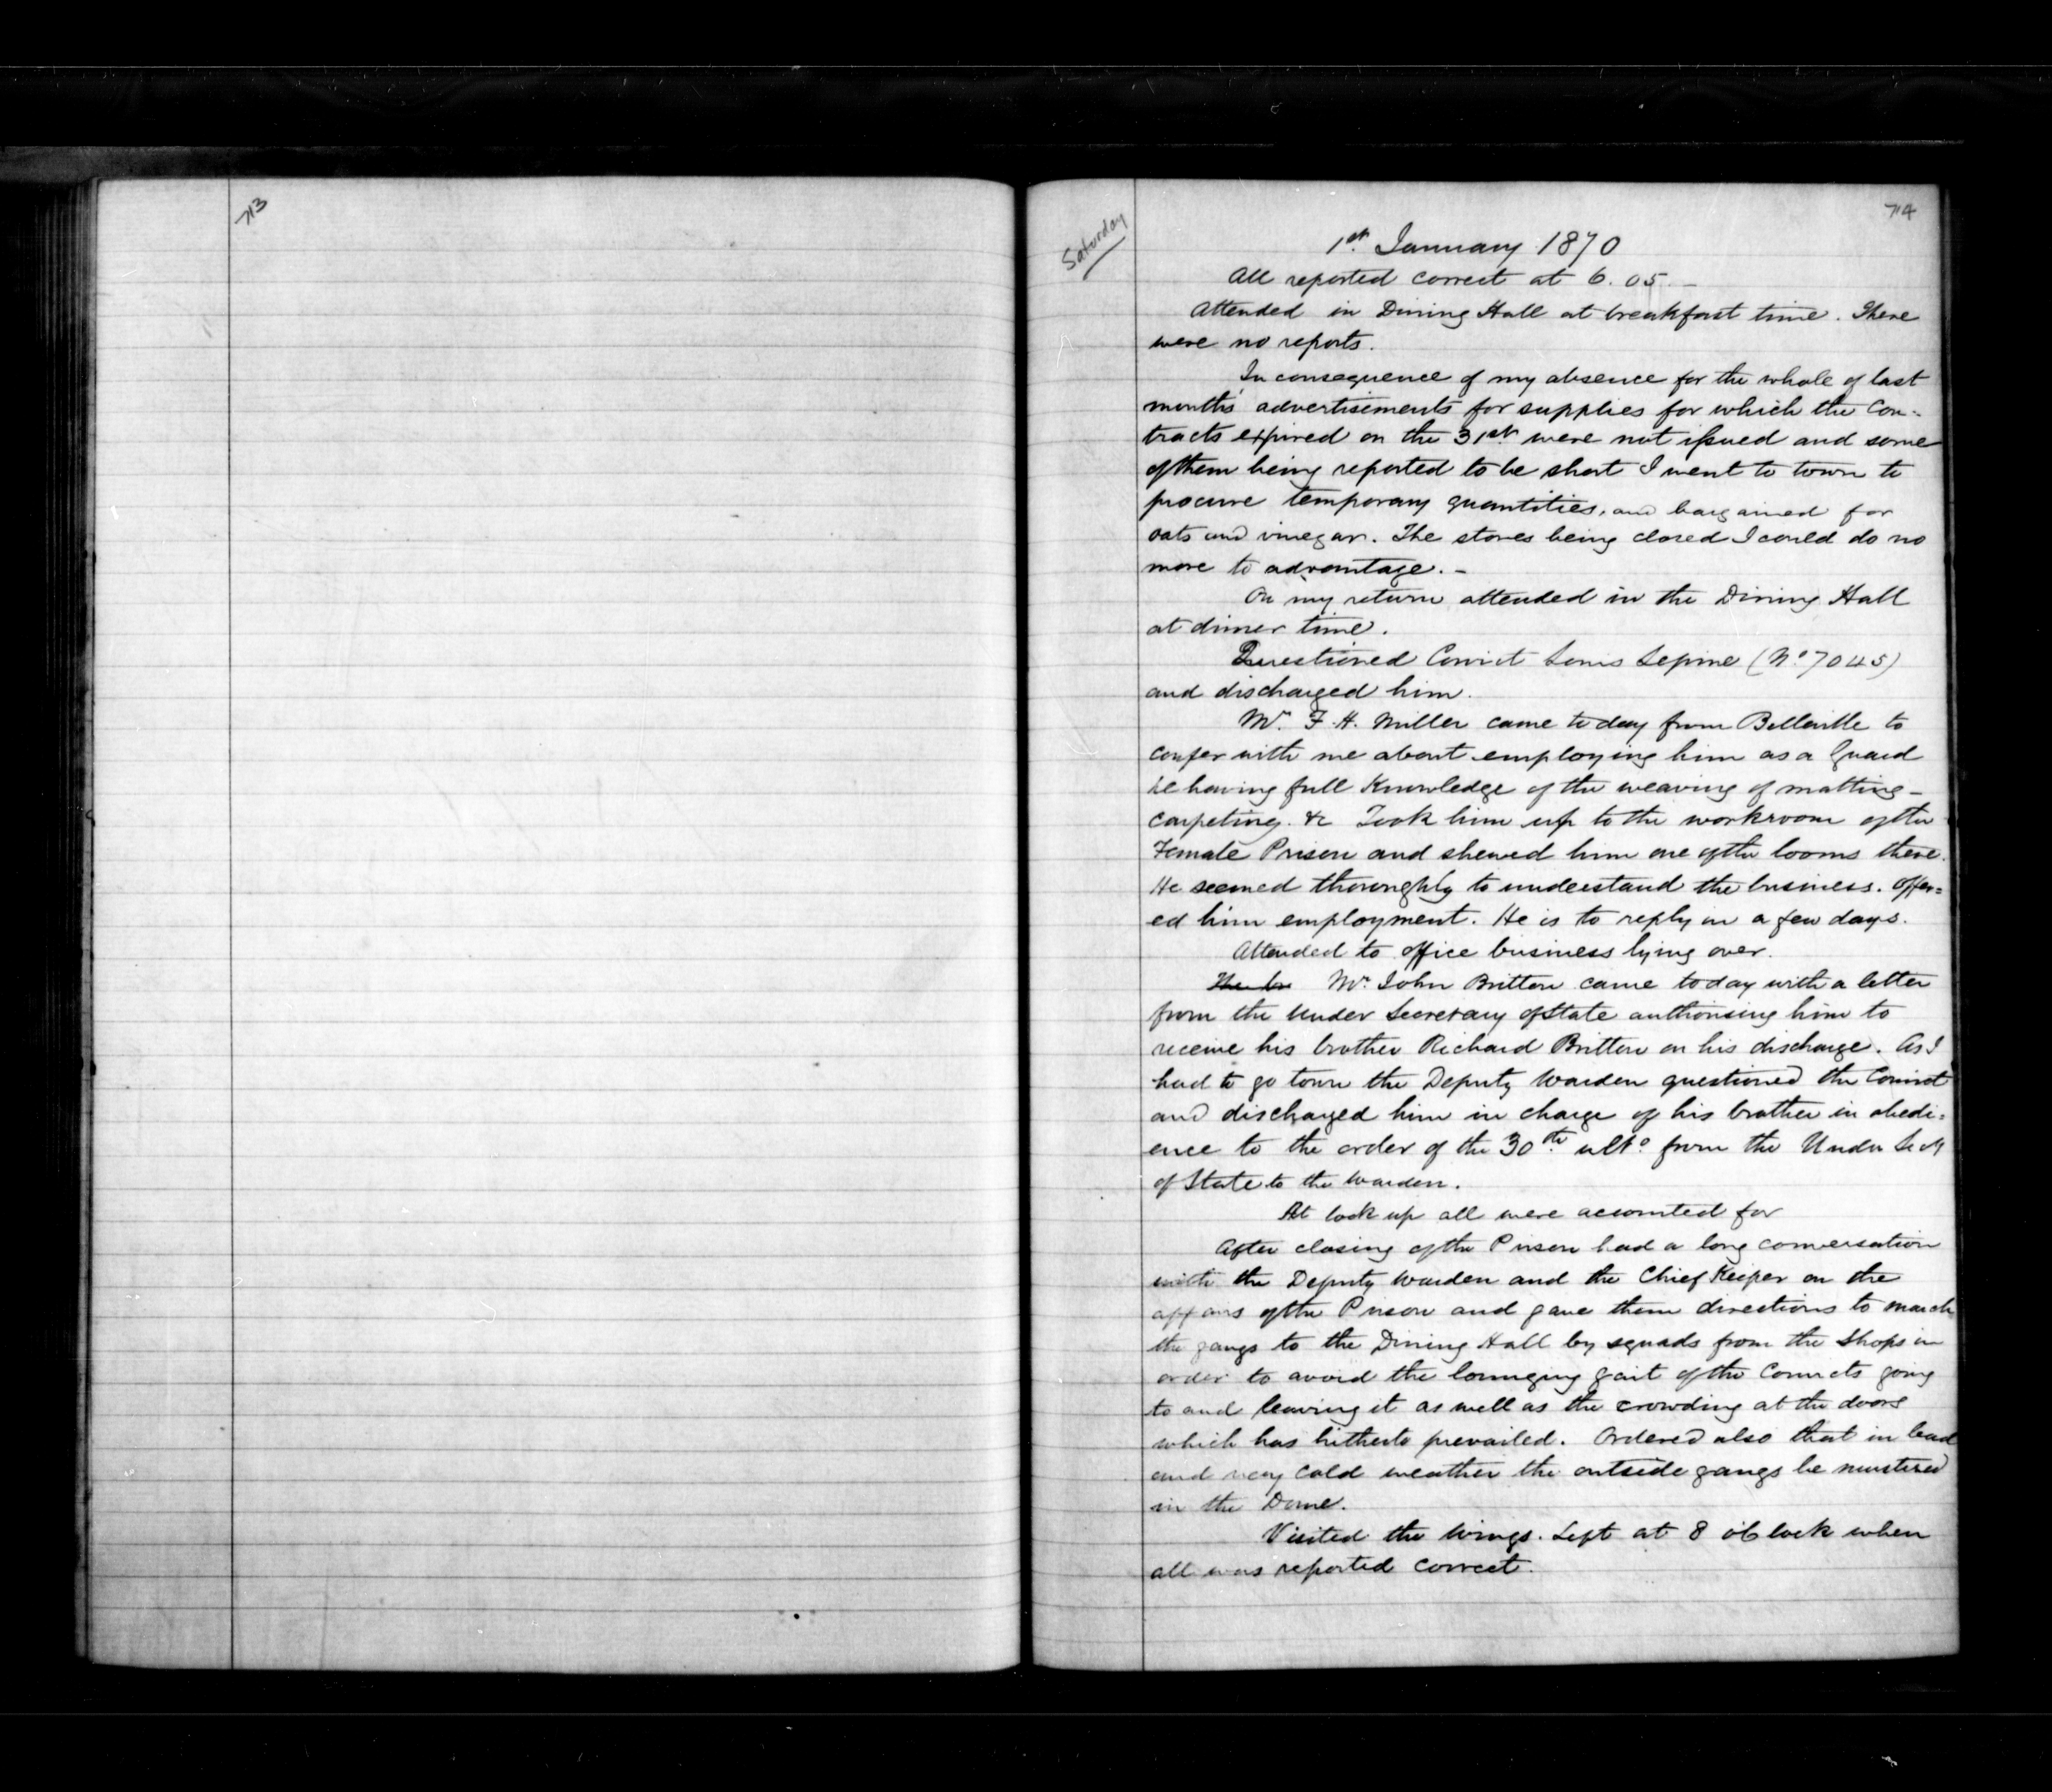 713
714
Saturday
1st January 1870
All reported correct at 6.05.–
Attended in Dining Hall at breakfast time. There
were no reports.
In consequence of my absence for the whole of last
months advertisements for supplies for which the Con-
tracts expired on the 31st were not issued and some
of them being reported to be short I went to town to
procure temporary quantities, and bargained for
oats and vinegar. The stores being closed I could do no
more to advantage.–
On my return attended in the Dining Hall
at dinner time.
Questioned Convict Louis Lepine (No 7045)
and discharged him.
Mr. F. H. Miller came to day from Belleville to
confer with me about employing him as a Guard
he having full Knowledge of the weaving of matting–
carpeting. &c Took him up to the workroom of the
Female Prison and shewed him one of the looms there.
He seemed thoroughly to understand the business. Offer=
ed him employment. He is to reply in a few days.
Attended to office business lying over.
Mr. John Britton came today with a letter
from the Under Secretary of State authorising him to
receive his brother Richard Britton on his discharge. As I
had to go town the Deputy Warden questioned the Convict
and discharged him in charge of his brother in obedi=
ence to the order of the 30th ulto. from the Under Secy
of State to the Warden.
At lock up all were accounted for
After closing of the Prison had a long conversation
with the Deputy Warden and the Chief Keeper on the
affairs of the Prison and gave them directions to march
the gangs to the Dining Hall by squads from the Shops in
order to avoid the lounging gait of the Convicts going
to and leaving it as well as the crowding at the doors
which has hitherto prevailed. Ordered also that in bad
and very cold weather the outside gangs be mustered
in the Dome.
Visited the Wings. Left at 8 o'Clock when
all was reported correct.